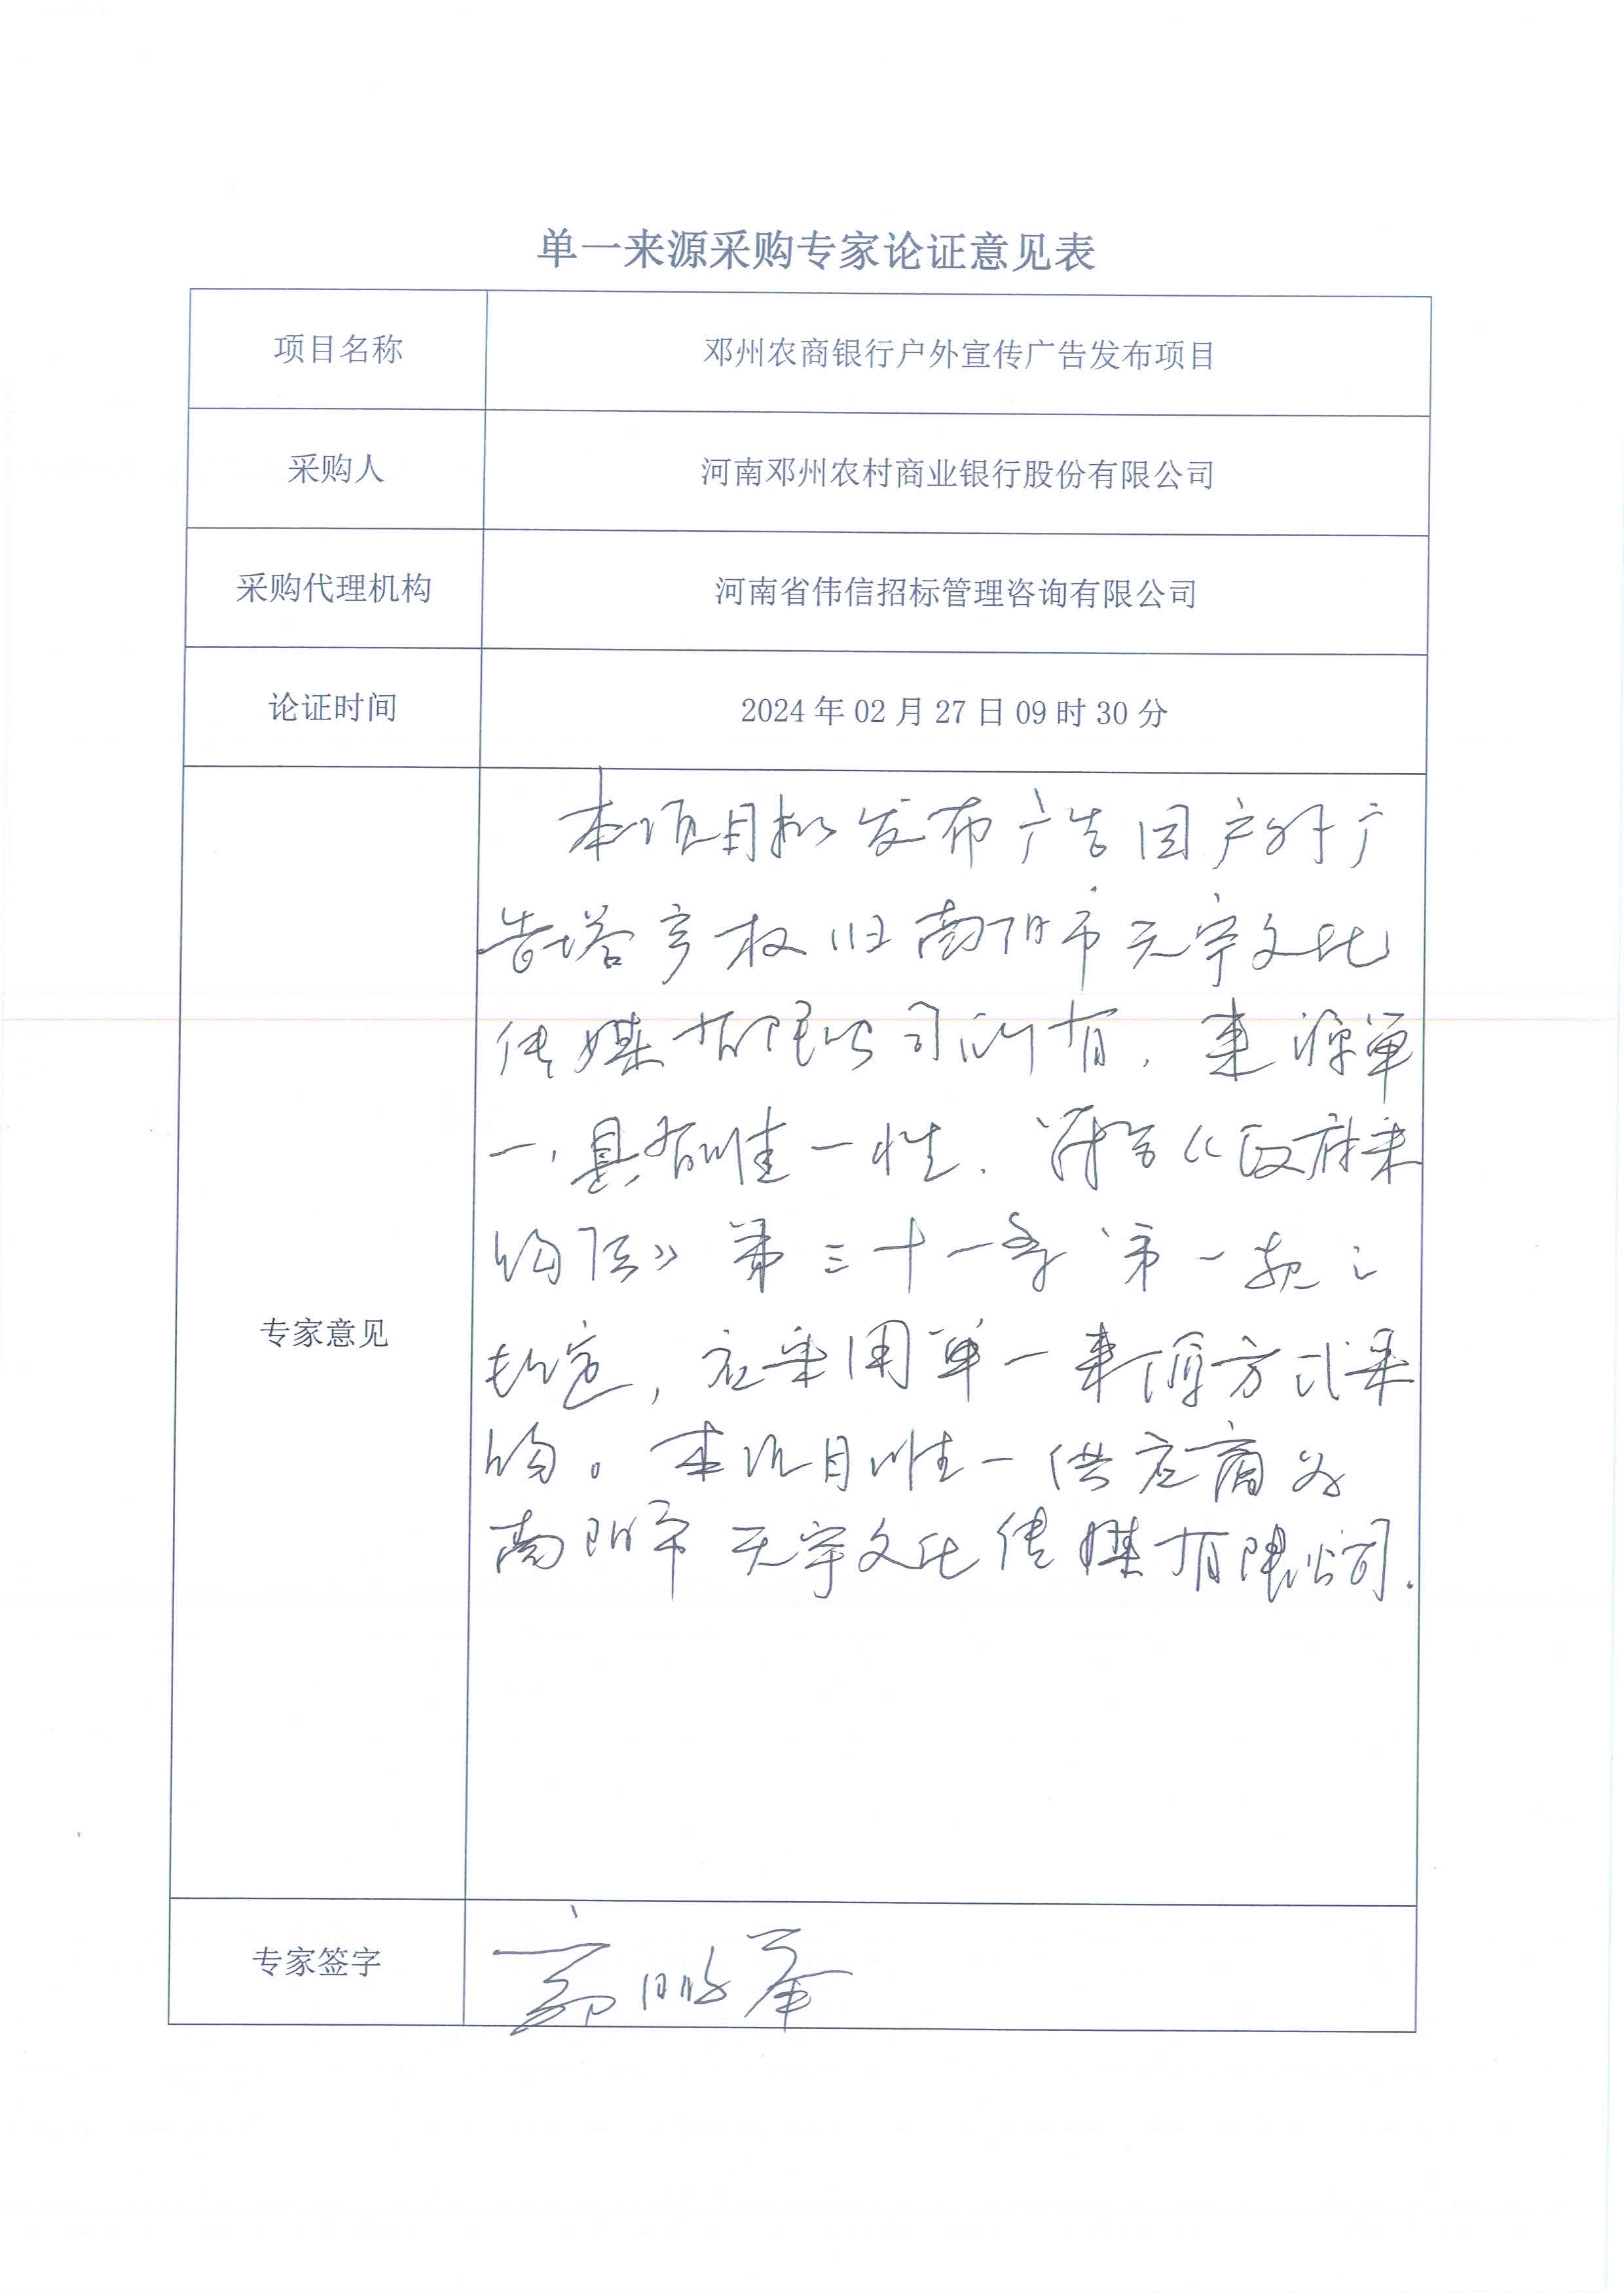 单一来源采购专家论证意见表
项目名称 邓州农商银行户外宣传广告发布项目
采购人 河南邓州农村商业银行股份有限公司
采购代理机构 河南省伟信招标管理咨询有限公司
论证时间 2024年02月27日09时30分
专家意见
本项目拟发布广告因户外广
告塔产权归南阳市天宇文化
传媒有限公司所有,来源单
一,具有唯一性.符合《政府采
购法》第三十一条第一款之
规定,应采用单一来源方式采
购。本项目唯一供应商为
南阳市天宇文化传媒有限公司.
专家签字